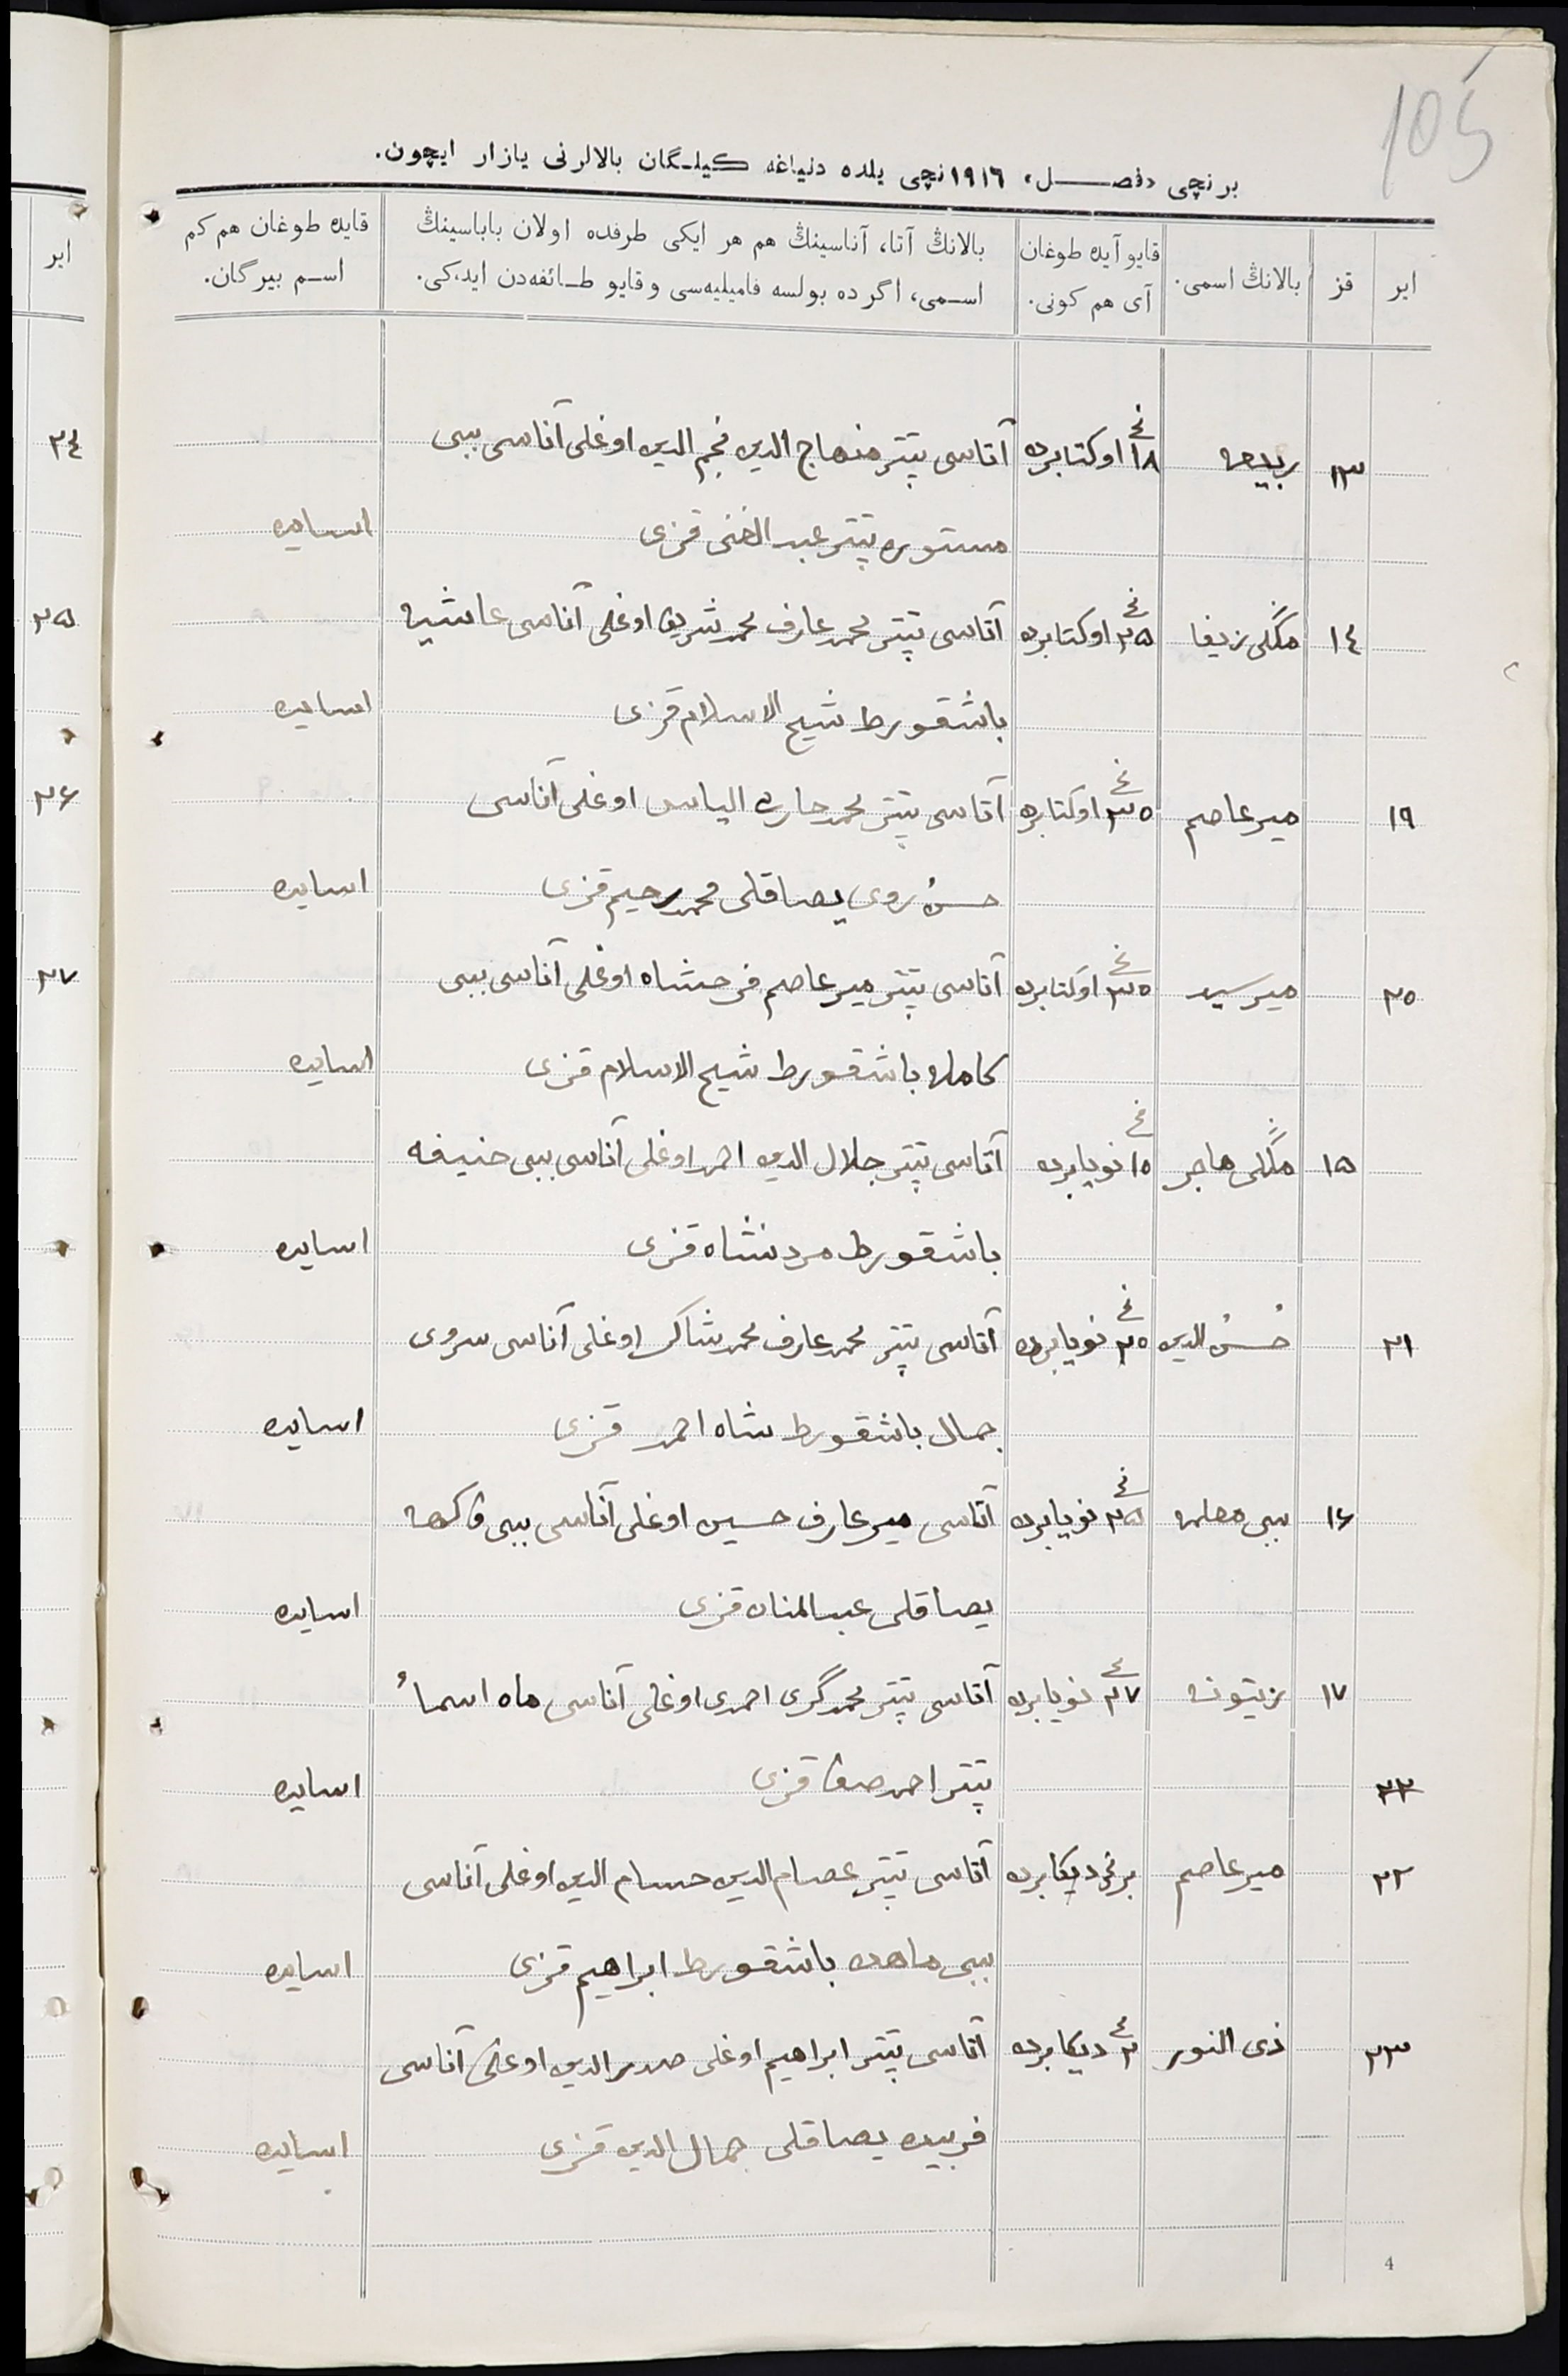 105
برنچی «فصل» ۱۹۱۶نچی یلده دنیاغه کیلگان بالالرنی یازار ایچون.
ایر
قز
بالانڭ اسمی.
قایو آیده طوغان
آی هم کونی.
بالانڭ آتا، آناسینڭ هم هر ایکی طرفده اولان باباسینڭ
اسمی، اگرده بولسه فامیلیه‌سی و قایو طائفه‌دن ایدکی.
قایده طوغان هم کم
اسم بیرگان.
۱۳ ربیعه ۱۸نچی اوکتابرده آتاسی تپتر منهاج الدین نجم الدین اوغلی آناسی بیبی
مستوره تپتر عبد الغنی قزی اسایده
۱٤ مڭلی زیفا ۲۵نچی اوکتابرده آتاسی تپتر محمد عارف محمد شریف اوغلی آناسی عائشیه
باشقورط شیح الاسلام قزی اسایده
۱۹ میر عاصم ۳۰نچی اوکتابرده آتاسی تپتر محمد حارث الیاس اوغلی آناسی
حسن روی یصاقلی محمد رحیم قزی اسایده
۲۰ میر سید ۳۰نچی اوکتابرده آتاسی تپتر میر عاصم فرحشاه اوغلی آناسی بیبی
کامله باشقورط شیح الاسلام قزی اسایده
۱۵ مڭلی هاجر ۱۰نچی نویابرده آتاسی تپتر جلال الدین احمد اوغلی آناسی بیبی حنیفه
باشقورط مردنشاه قزی اسایده
۲۱ حُسن الدین ۲۰نچی نویابرده آتاسی تپتر محمد عارف محمد شاکر اوغلی آناسی سروی
جمال باشقورط شاه احمد قزی اسایده
۱۶ بیبی معلمه ۲۵نچی نویابرده آتاسی میر عارف حسین اوغلی آناسی بیبی فاکهه
یصاقلی عبد المنان قزی اسایده
۱۷ زیتونه ۲۷نچی نویابرده آتاسی تپتر محمد گری احمدی اوغلی آناسی ماه اسماء
تپتر احمد صفا قزی اسایده
۲۲
۲۲ میر عاصم برنچی دیکابرده آتاسی تپتر عصام الدین حسام الدین اوغلی آناسی
بیبی ماهده باشقورط ابراهیم قزی اسایده
۲۳ ذی النور ۲نچی دیکابرده آتاسی تپتر ابراهیم اوغلی صدر الدین اوغلی آناسی
فریده یصاقلی جمال الدین قزی اسایده
4
ایر
۲٤
۲۵
۲۶
۲۷